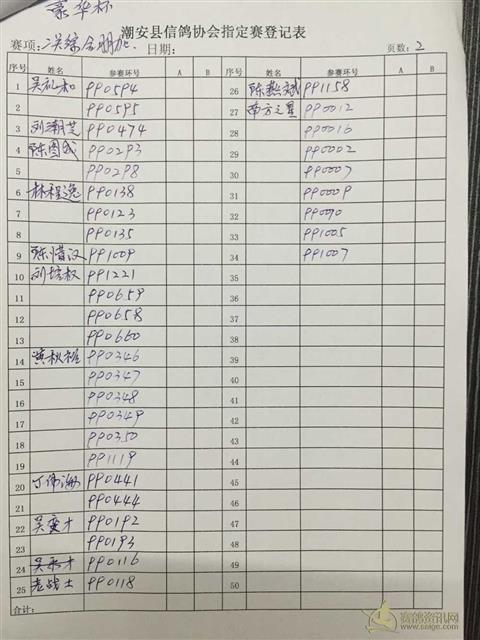 豪华杯
潮安县信鸽协会指定赛登记表
赛项: 综合 日期: 页数: 2
序号 姓名 参赛环号 A B 序号 姓名 参赛环号 A B
1 吴礼和 PP0594 26 陈 斌 PP1158
2 PP0595 27 南方之星 PP0012
3 刘潮芝 PP0474 28 PP0016
4 陈图 PP0293 29 PP0002
5 PP0298 30 PP0007
6 林程逸 PP0138 31 PP0009
7 PP0123 32 PP0090
8 PP0135 33 PP1005
9 陈惜汉 PP1009 34 PP1007
10 刘培权 PP1221 35
11 PP0659 36
12 PP0658 37
13 PP0660 38
14 黄秋 PP0346 39
15 PP0347 40
16 PP0348 41
17 PP0349 42
18 PP0350 43
19 PP1119 44
20 丁伟 PP0441 45
21 PP0444 46
22 吴 才 PP0192 47
23 PP0193 48
24 吴 才 PP0116 49
25 老战士 PP0118 50
合计:
赛鸽资讯网
www.saige.com